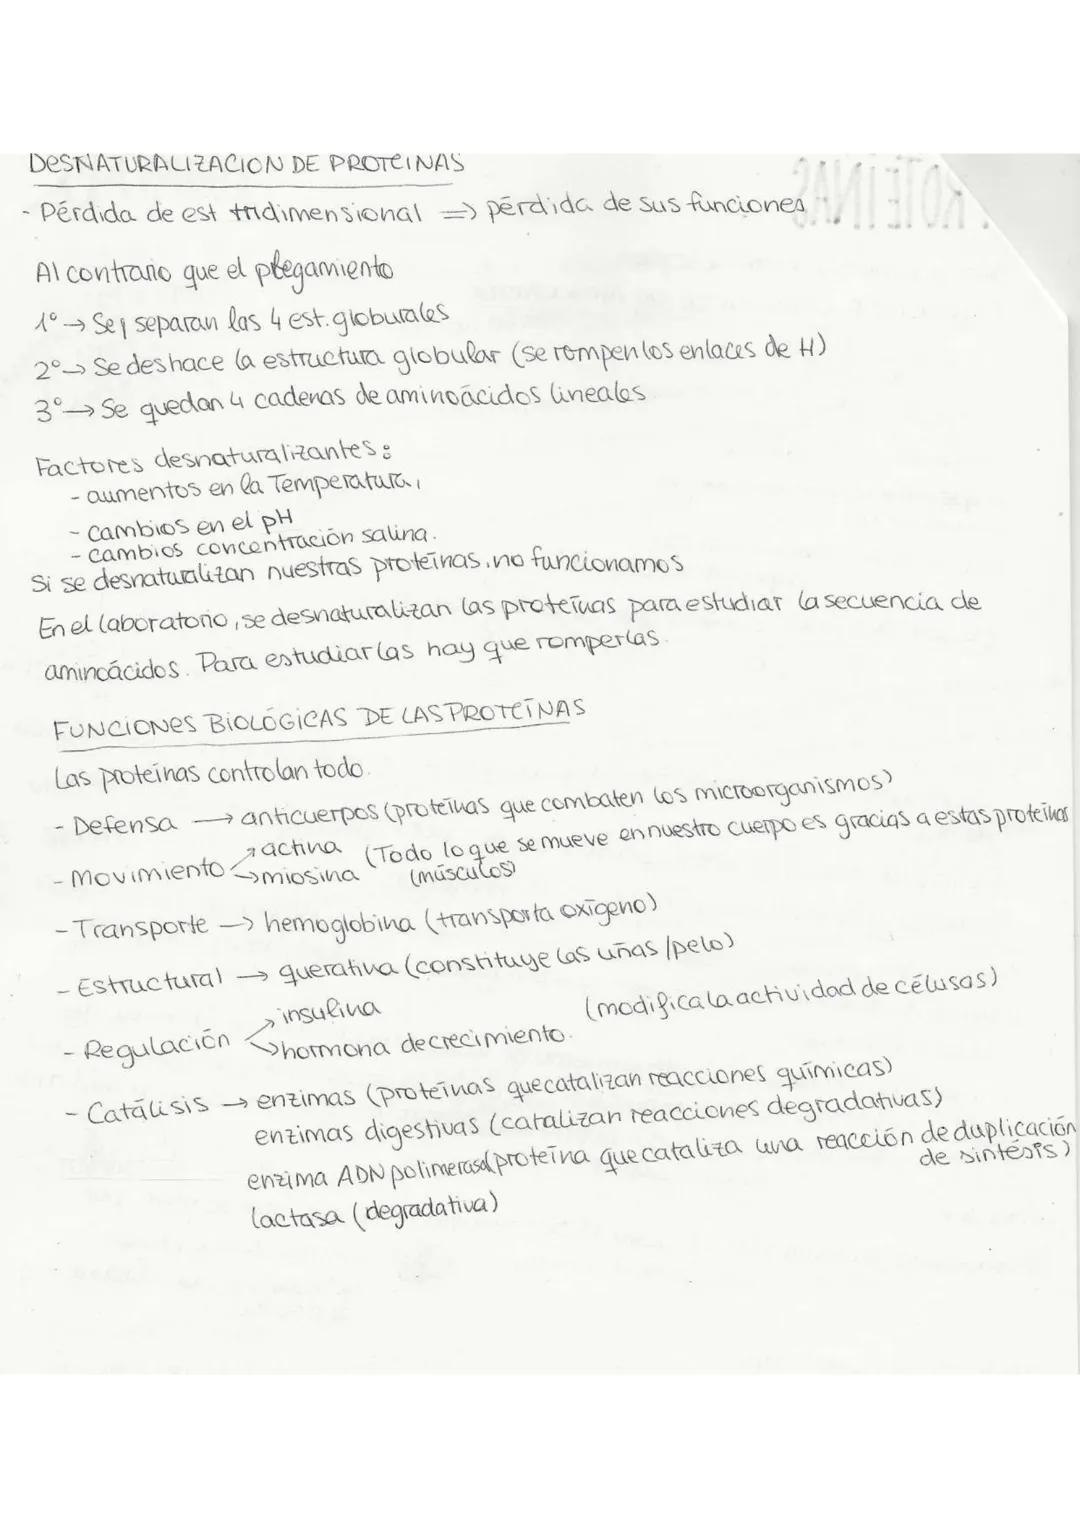 DESNATURALIZACION DE PROTEINAS
- Pérdida de est tridimensional => pérdida de sus funciones
Al contrario que el plegamiento
1º → Se separan las 4 est. globurales
2º → Se deshace la estructura globular (se rompen los enlaces de H)
3º → Se quedan 4 cadenas de aminoácidos lineales
Factores desnaturalizantes:
- aumentos en la Temperatura,
- cambios en el pH
- cambios concentración salina.
Si se desnaturalizan nuestras proteínas, no funcionamos
En el laboratorio, se desnaturalizan las proteínas para estudiar la secuencia de
aminoácidos. Para estudiarlas hay que romperlas.
FUNCIONES BIOLÓGICAS DE LAS PROTEÍNAS
Las proteínas controlan todo.
- Defensa → anticuerpos (proteínas que combaten los microorganismos)
- Movimiento → actina (Todo lo que se mueve en nuestro cuerpo es gracias a estas proteínas
→ miosina (músculos)
- Transporte → hemoglobina (transporta oxígeno)
- Estructural → queratina (constituye las uñas/pelo)
- Regulación → insulina (modifica la actividad de célusas)
→ hormona de crecimiento.
- Catálisis → enzimas (proteínas que catalizan reacciones químicas)
enzimas digestivas (catalizan reacciones degradativas)
enzima ADN polimerasa (proteína que cataliza una reacción de duplicación
de síntesis)
lactasa (degradativa)